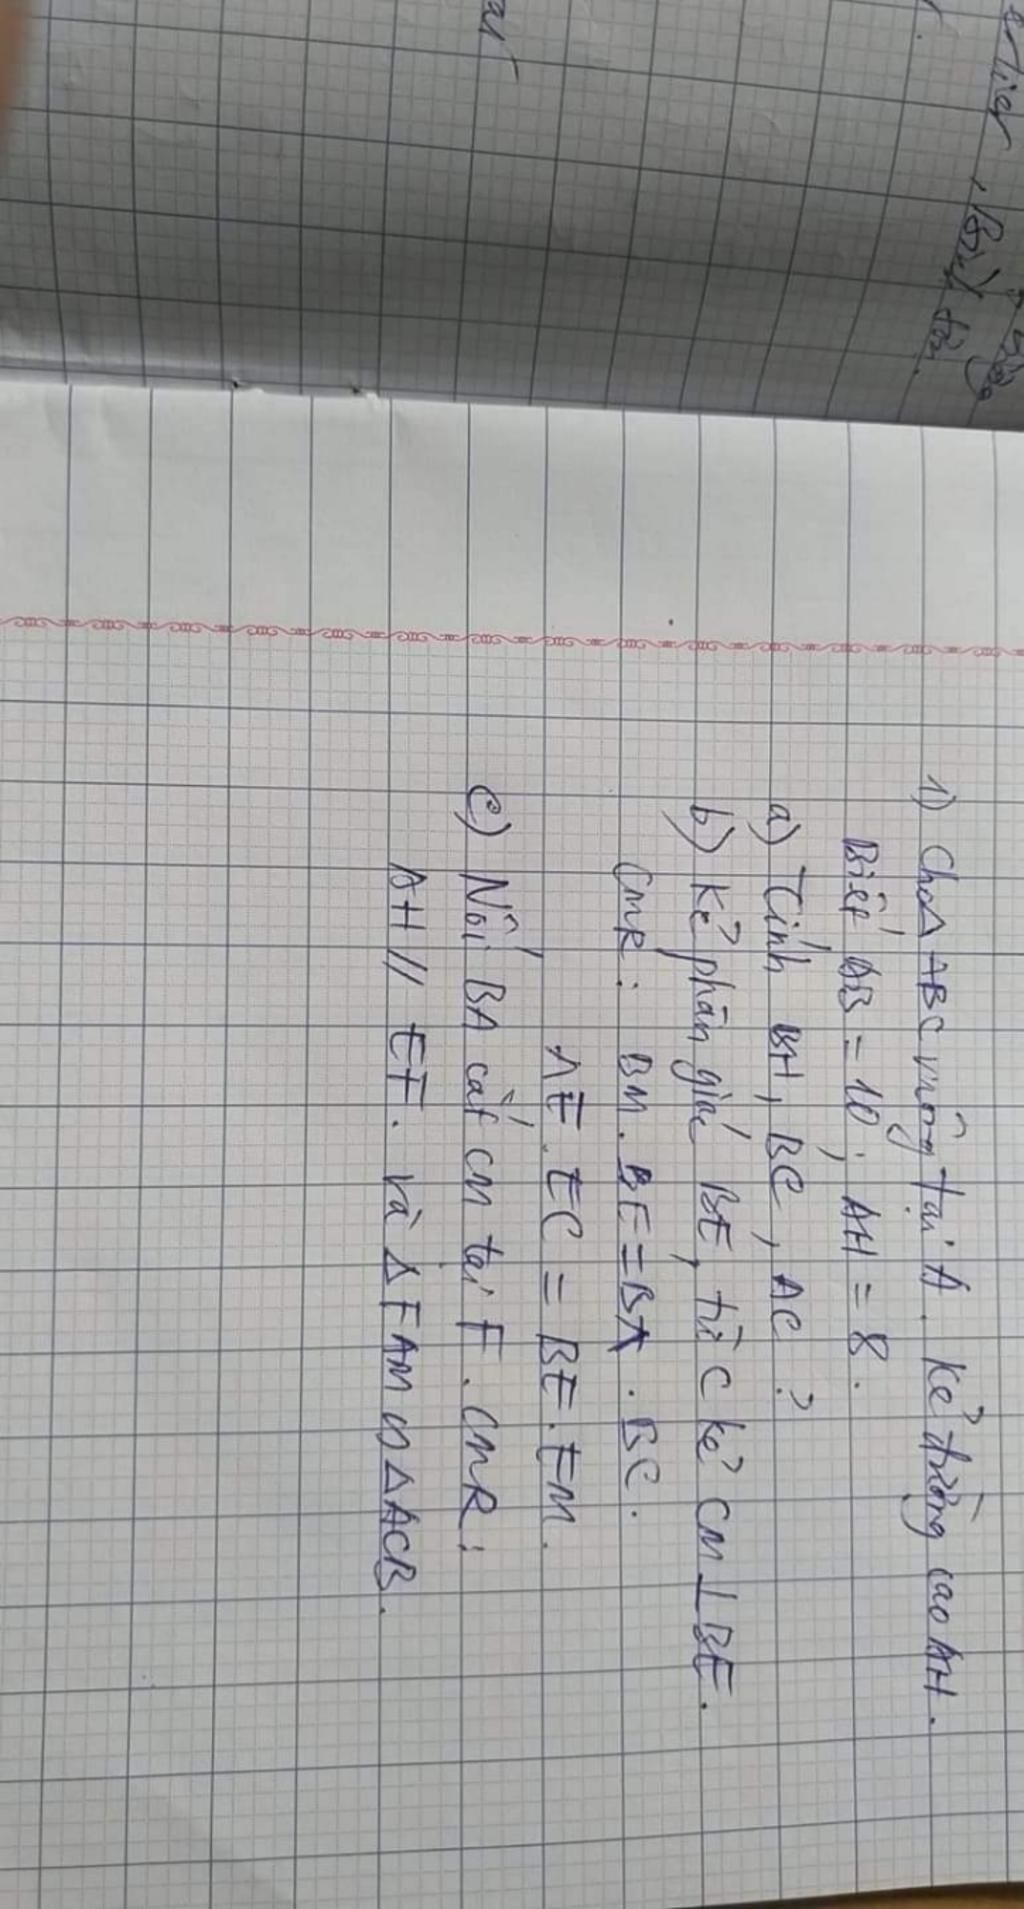 1) Cho Δ ABC vuông tại A. Kẻ đường cao AH.
Biết AB = 10; AH = 8.
a) Tính BH, BC, AC ?
b) Kẻ phân giác BE, từ C kẻ CM ⊥ BE.
CMR : BM. BE = BA . BC.
AE. EC = BE. EM.
c) Nối BA cắt CM tại F. CMR :
AH // EF. và Δ FAM ∽ Δ ACB.